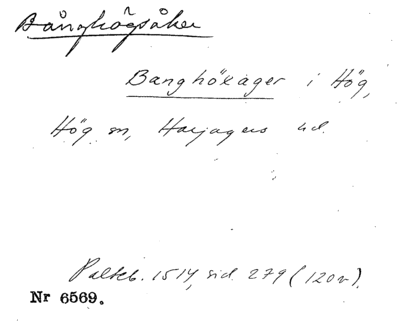 Bånghögsåker
Banghöxager i Hög,
Hög sn, Harjagers hd.
Palteb. 1514, sid 279 (120v).
Nr 6569.